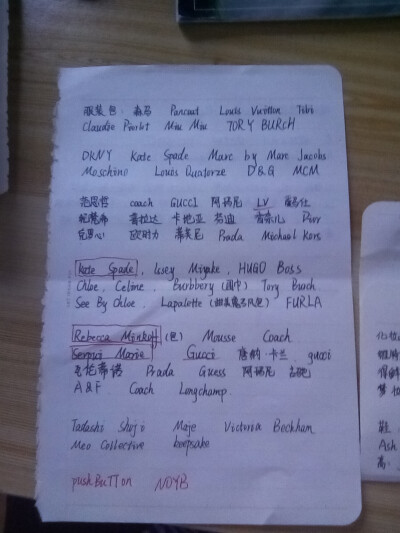 服装包: 森马 Pancoat Louis Vuitton Tibi
Claudie Pierlot Miu Miu TORY BURCH
DKNY Kate Spade Marc by Marc Jacobs
Moschino Louis Quatorze D&G MCM
范思哲 coach GUCCI 阿玛尼 LV
普拉达 卡地亚 芬迪 香奈儿 Dior
欧时力 蒂芙尼 Prada Michael Kors
Kate Spade, Issey Miyake, HUGO Boss
Chloe, Celine, Burbbery (围巾) Tory Burch
See By Chloe, Lapalette FURLA
Rebecca Minkoff (包) Mousse Coach
Sergui Marie Gucci 唐纳·卡兰, gucci
Prada Guess 阿玛尼
A&F Coach Longchamp
Tadashi Shoji Maje Victoria Beckham
Meo Collective keepsake
pushBuTTon NOYB
Ash